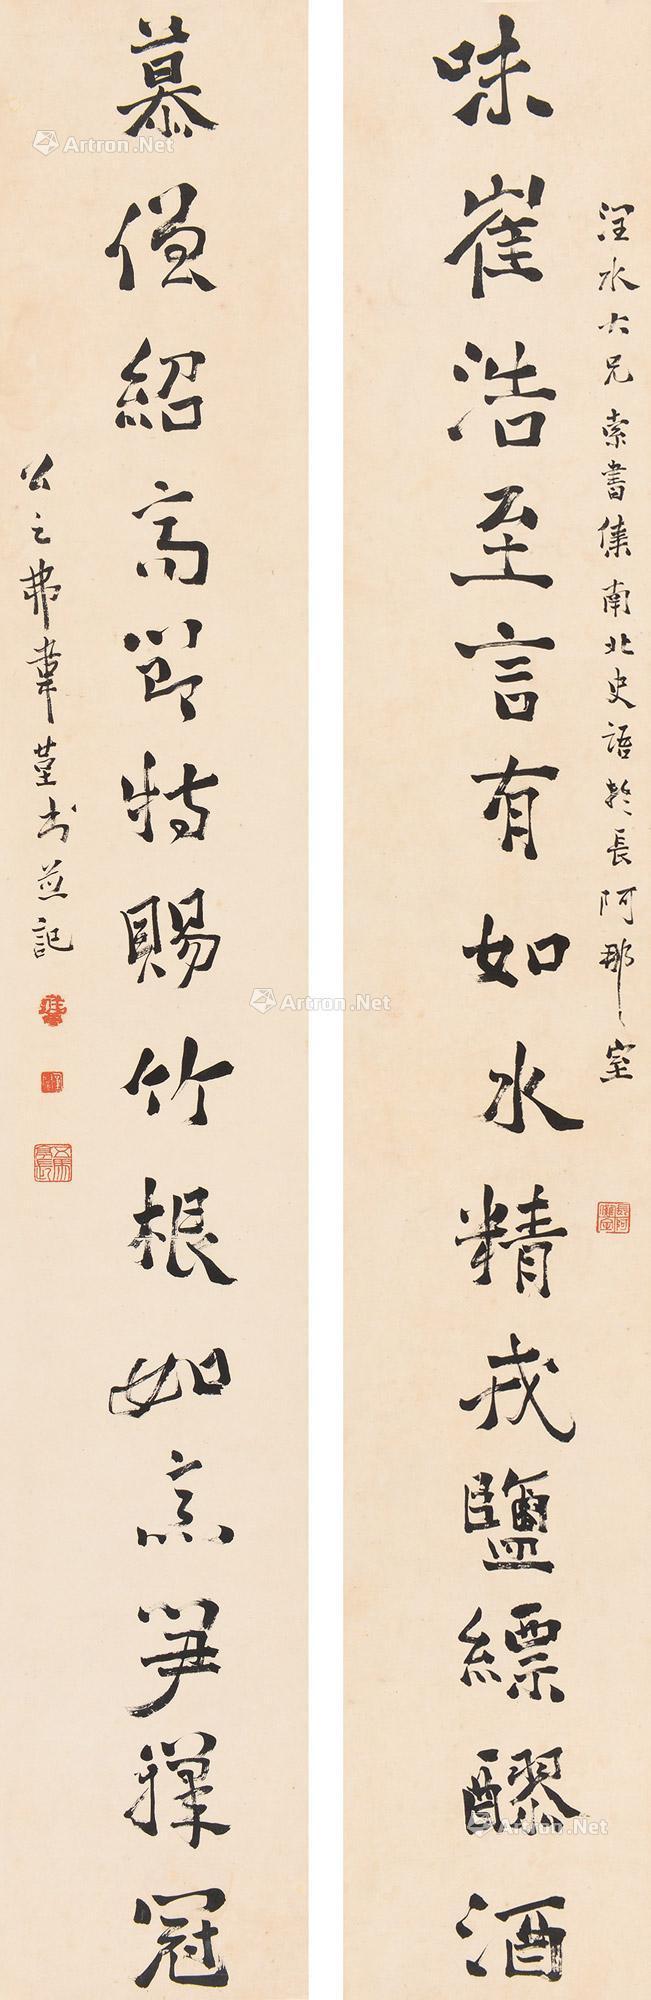 味崔浩至言有如水精戎鹽縹醪酒
涅水大兄索書集南北史語於長阿那室
慕僧紹高節特賜竹根如意笋籜冠
公之弗韋堇書並記
Artron.Net
Artron.Net
Artron.Net